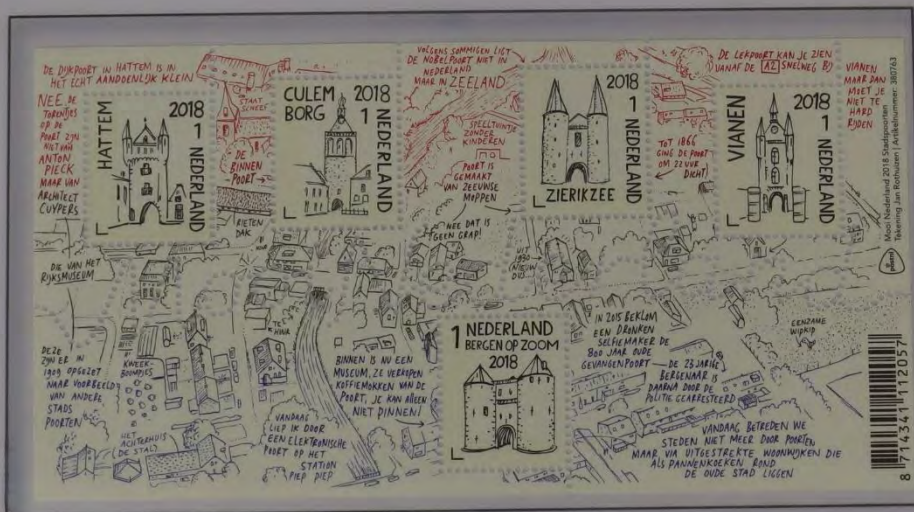 DE DIJKPOORT IN HATTEM IS IN
HET ECHT AANDOENLIJK KLEIN
NEE, DE
TORENTJES
OP DE
POORT ZIJN
NIET VAN
ANTON
PIECK
MAAR VAN
ARCHITECT
CUYPERS
HATTEM
2018
1
NEDERLAND
STAAT
SCHEEF
DE
BINNEN
POORT
RIETEN
DAK
CULEM
BORG
2018
1
NEDERLAND
VOLGENS SOMMIGEN LIGT
DE NOBELPOORT NIET IN
NEDERLAND
MAAR IN ZEELAND
SPEELTUINTJE
ZONDER
KINDEREN
POORT IS
GEMAAKT
VAN ZEEUWSE
MOPPEN
NEE DAT IS
GEEN GRAP!
2018
1
NEDERLAND
ZIERIKZEE
UIT
1930
(NIEUW
DUS)
DE LEKPOORT KAN JE ZIEN
VANAF DE A2 SNELWEG BIJ
VIANEN
MAAR DAN
MOET JE
NIET TE
HARD
RIJDEN
TOT 1866
GING DE POORT
OM 22 UUR
DICHT!
VIANEN
2018
1
NEDERLAND
Mooi Nederland 2018 Stadspoorten
Tekening Jan Rothuizen | Artikelnummer: 380763
postnl
DIE VAN HET
RIJKSMUSEUM
DEZE
ZIJN ER IN
1909 OPGEZET
NAAR VOORBEELD
VAN ANDERE
STADS
POORTEN
KWEEK
BOOMPJES
HET
ACHTERHUIS
(DE STAL)
TE
HUUR
VANDAAG
LIEP IK DOOR
EEN ELEKTRONISCHE
POORT OP HET
STATION
PIEP PIEP
BINNEN IS NU EEN
MUSEUM, ZE VERKOPEN
KOFFIEMOKKEN VAN DE
POORT, JE KAN ALLEEN
NIET PINNEN!
1 NEDERLAND
BERGEN OP ZOOM
2018
IN 2015 BEKLOM
EEN DRONKEN
SELFIEMAKER DE
800 JAAR OUDE
GEVANGENPOORT — DE 23 JARIGE
BERGENAAR IS
DAARNA DOOR DE
POLITIE GEARRESTEERD
EENZAME
WIPKIP
VANDAAG BETREDEN WE
STEDEN NIET MEER DOOR POORTEN
MAAR VIA UITGESTREKTE WOONWIJKEN DIE
ALS PANNENKOEKEN ROND
DE OUDE STAD LIGGEN
8 714341 112057